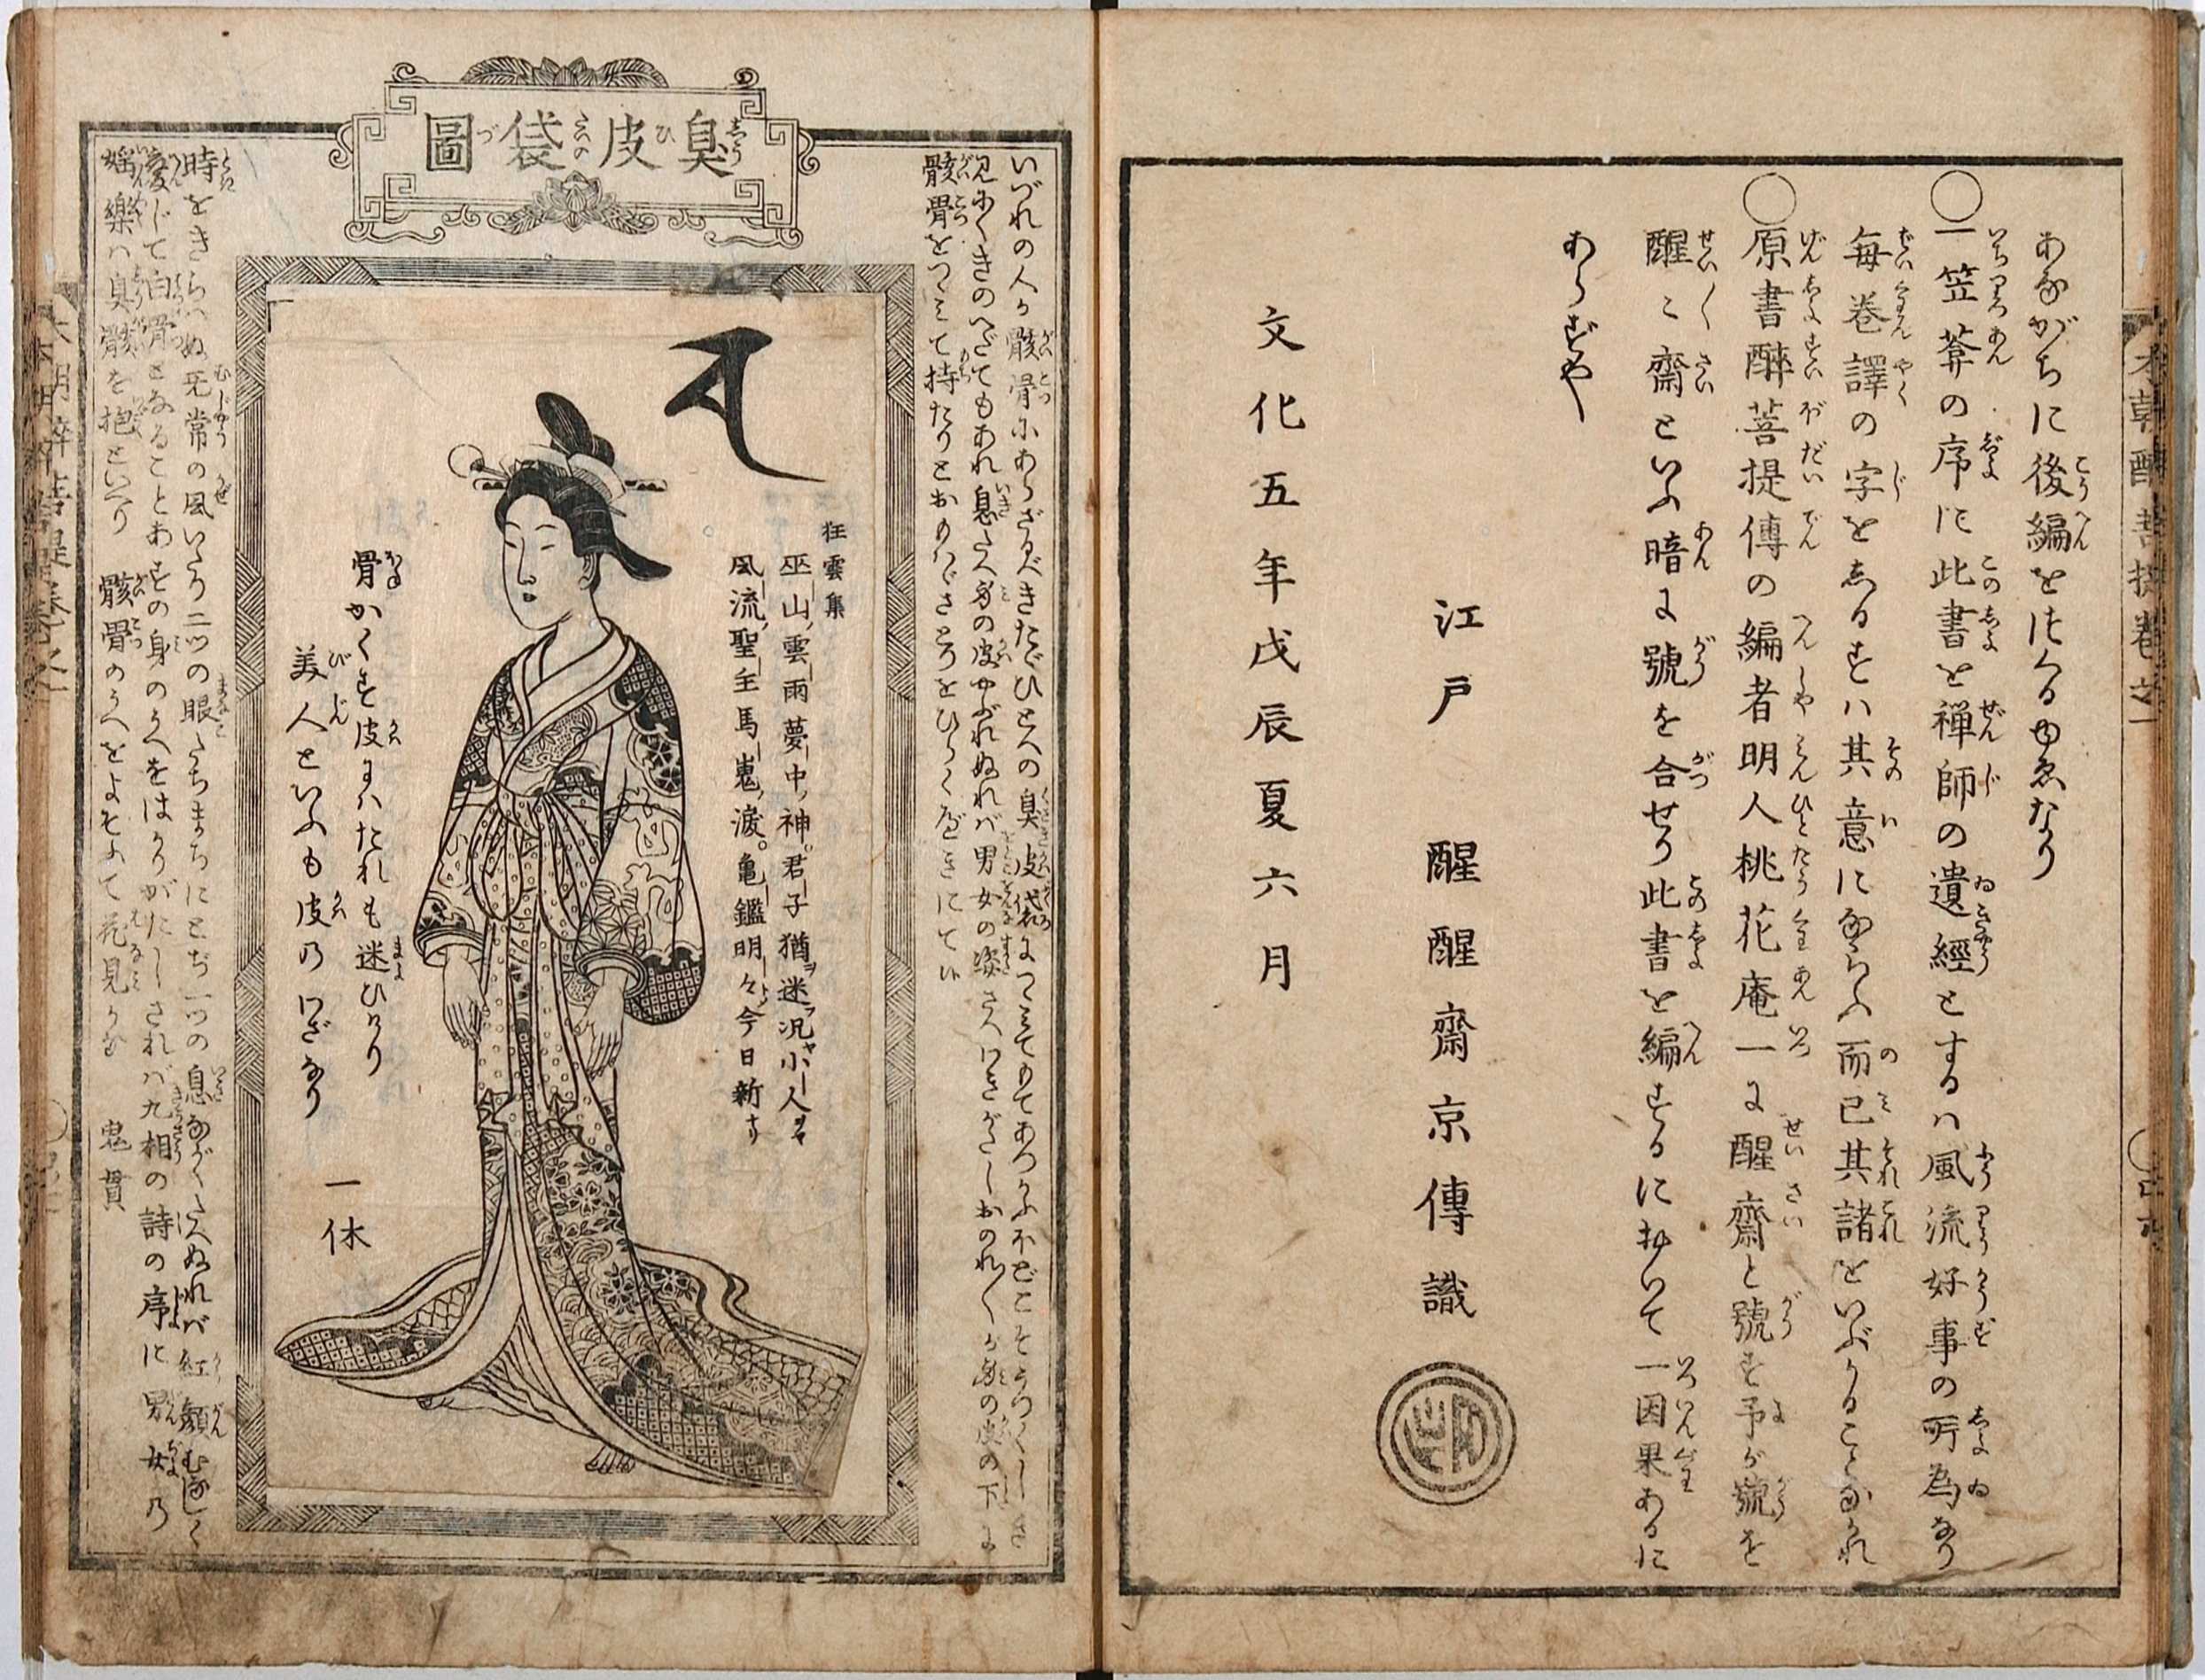 あながちに後編をはくるゆゑなり
○一笠菴の序に此書を禅師の遺經とするハ風流好事の所為なり
毎巻譯の字をゑるすハ其意にならふ而已其諸をいぶかることなかれ
○原書醉菩提傳の編者明人桃花庵一に醒齋と號す予が號を
醒〻齋といふ暗に號を合せり此書を編するにおいて一因果あるに
あらずや
江戸 醒醒齋京傳識
文化五年戊辰夏六月
本朝醉菩提巻之一
臭皮袋圖
いづれの人か骸骨にあらざるべきたゞひとへの臭皮袋につゝみてもてあつかふほどこそうつくしき
見にくきのへだてもあれ息たへ身の皮やぶれぬれバ男女の姿さへわきがたしおのれ〳〵が身の皮の下に
骸骨をつゝみて持たりとおもひさとりをひらくべきにてい
狂雲集
巫山雲雨夢中神。君子猶迷況小人
風流聖主馬嵬涙。亀鑑明々今日新
骨かくす皮にハたれも迷ひけり
美人といふも皮のわざなり
一休
時をきらはぬ無常の風いたり二ツの眼たちまちにとぢ一つの息ながくたえぬれバ紅顔むなしく
変じて白骨となることあすの身のうへをはかりがたしされバ九相の詩の序に男女の
婬樂ハ臭骸を抱といへり 骸骨のうへをよそふて花見かな 鬼貫